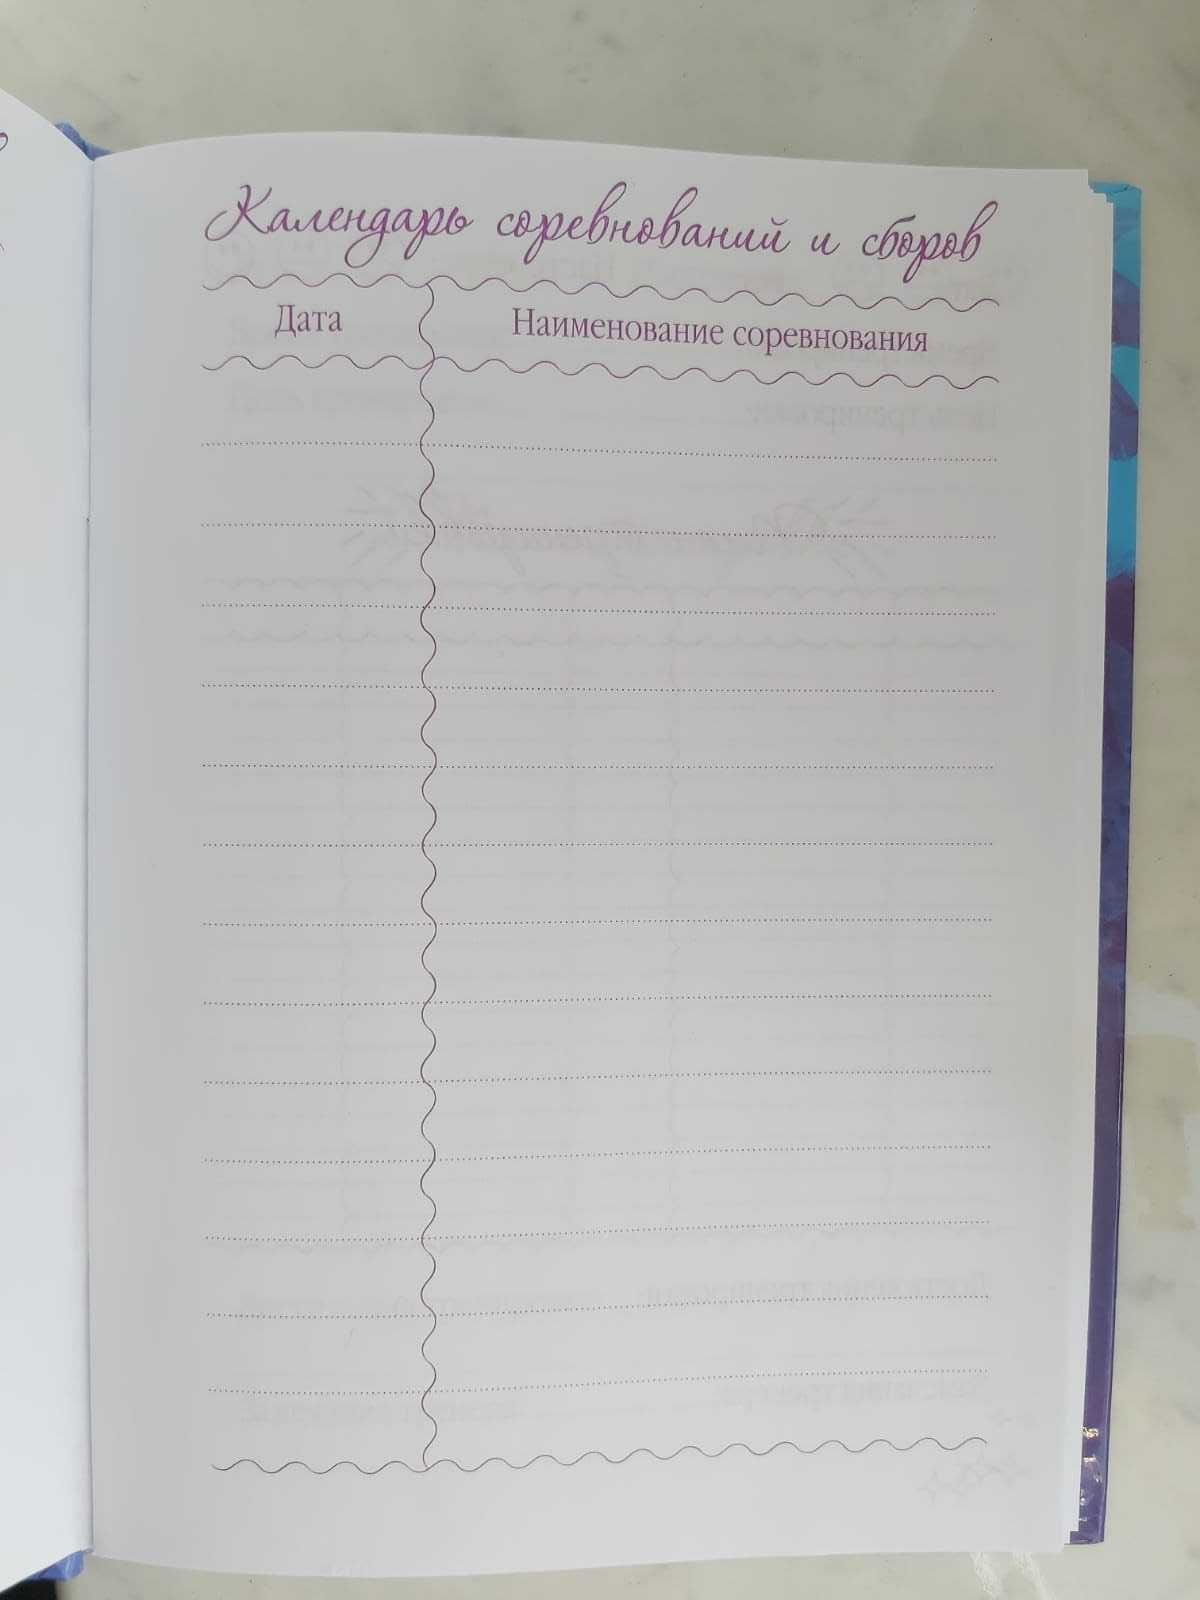 Календарь соревнований и сборов
Дата
Наименование соревнования